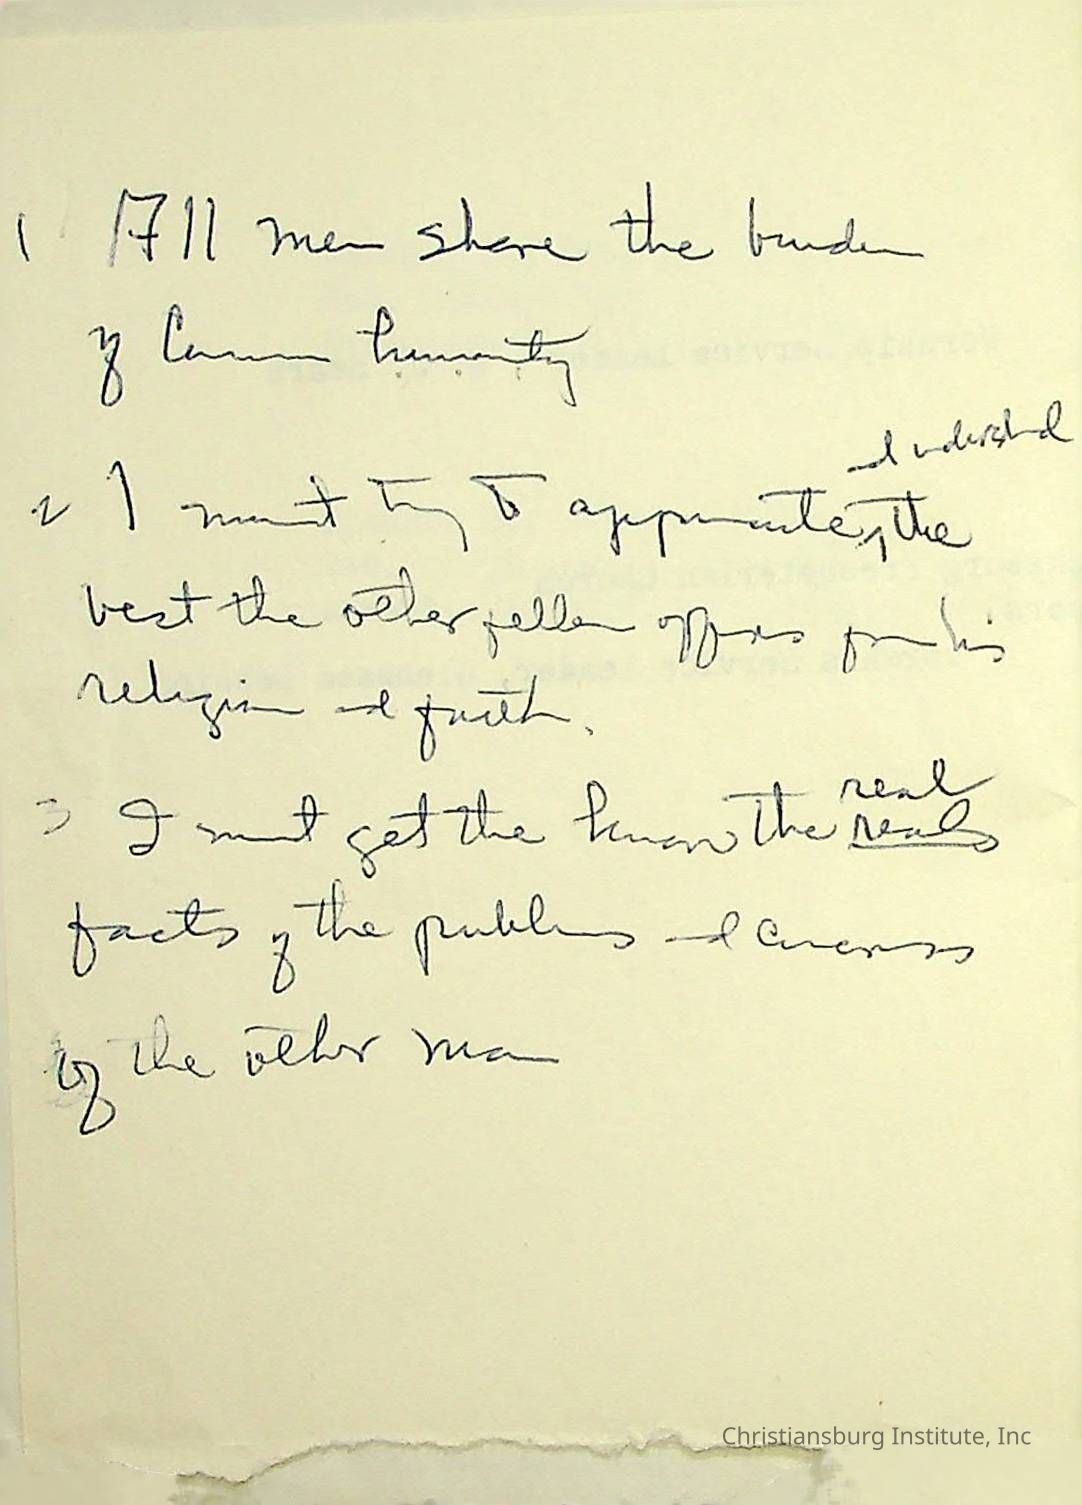 1 All men share the burden
of Common humanity
and understand
2 I must try to appreciate, the
best the other fellow offers from his
religion and faith.
real
3 I must get the know the reals
facts of the problems and concerns
of the other man
Christiansburg Institute, Inc